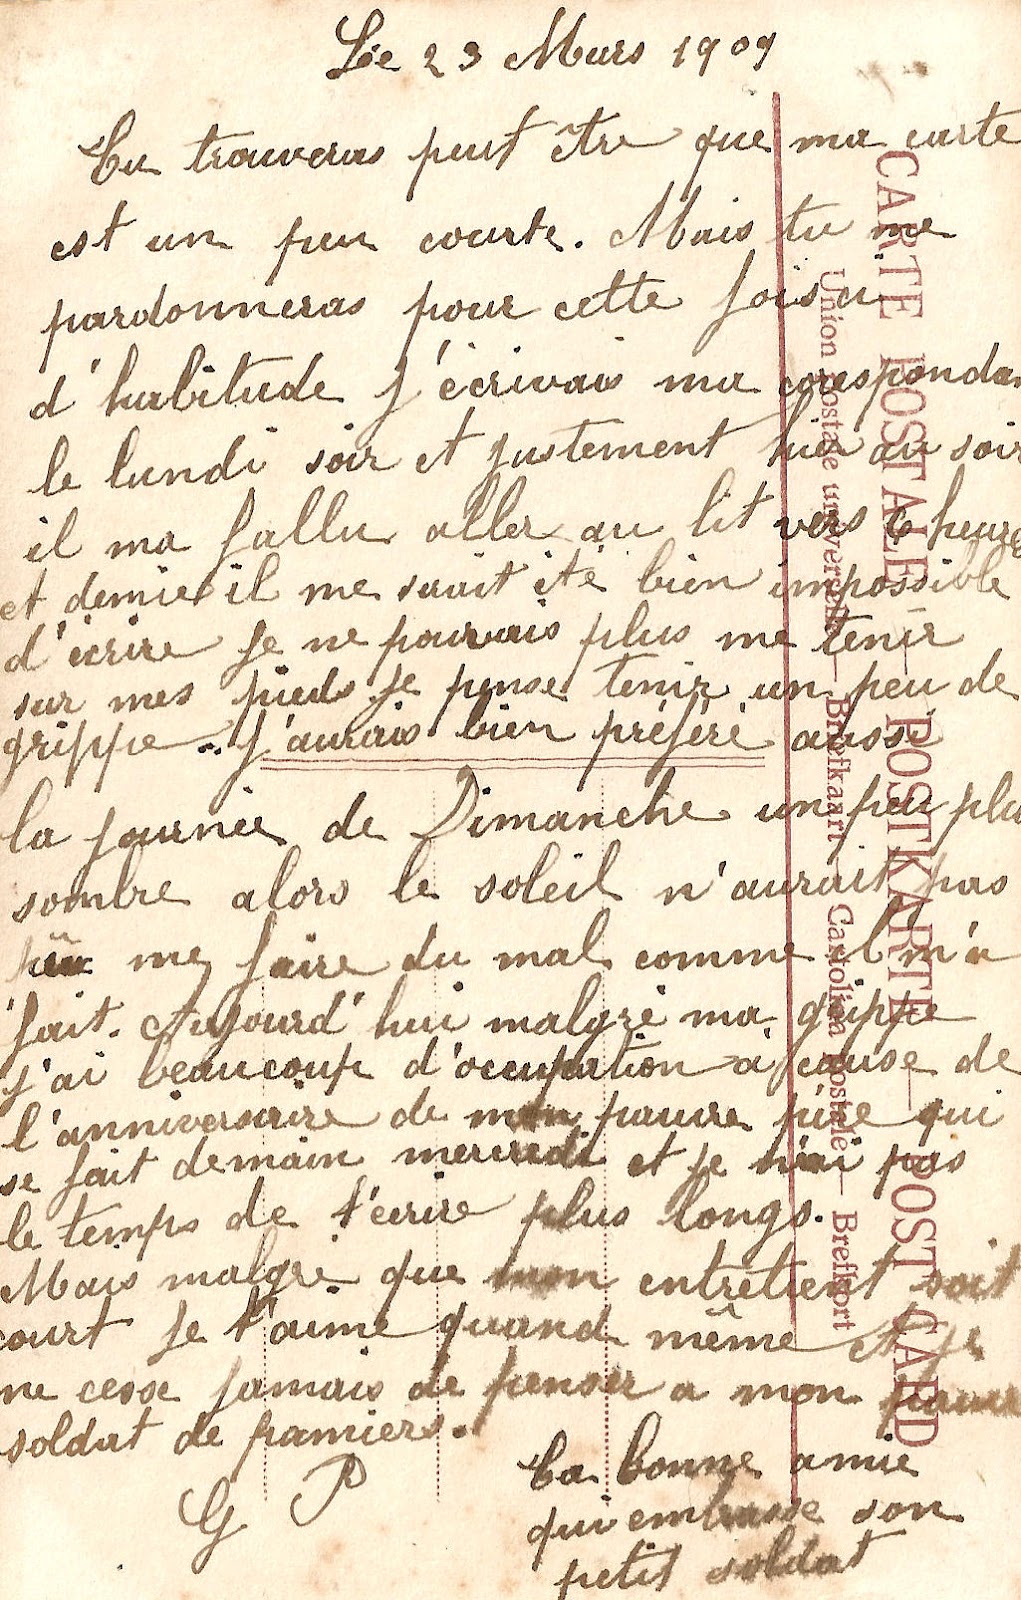 Le 23 Mars 1909
Tu trouveras peut être que ma carte
est un peu courte. Mais tu me
pardonneras pour cette fois ci
d'habitude j'écrivais ma corespondan
le lundi soir et justement hier au soir
il ma fallu aller au lit vers 6 heures
et demie il me serait été bien impossible
d'écrire je ne pouvais plus me tenir
sur mes pieds je pense tenir un peu de
grippe. j'aurais bien préféré aussi
la journée de Dimanche un peu plu
sombre alors le soleil n'aurait pas
pu me faire du mal comme l m'a
fait. Aujourd'hui malgré ma grippe
j'ai beaucoup d'occupation à cause de
l'anniversaire de mon pauvre père qui
se fait demain mercredi et je n'ai pas
le temps de t'écrire plus longs.
Mais malgré que mon entretient soit
court je t'aime quand même et je
ne cesse jamais de penser a mon pauvr
soldat de pamiers.
G P
Ta bonne amie
qui embrasse son
petit soldat
CARTE POSTALE — POSTKARTE — POST CARD
Union postale universelle — Briefkaart Cartolina postale — Brefkort